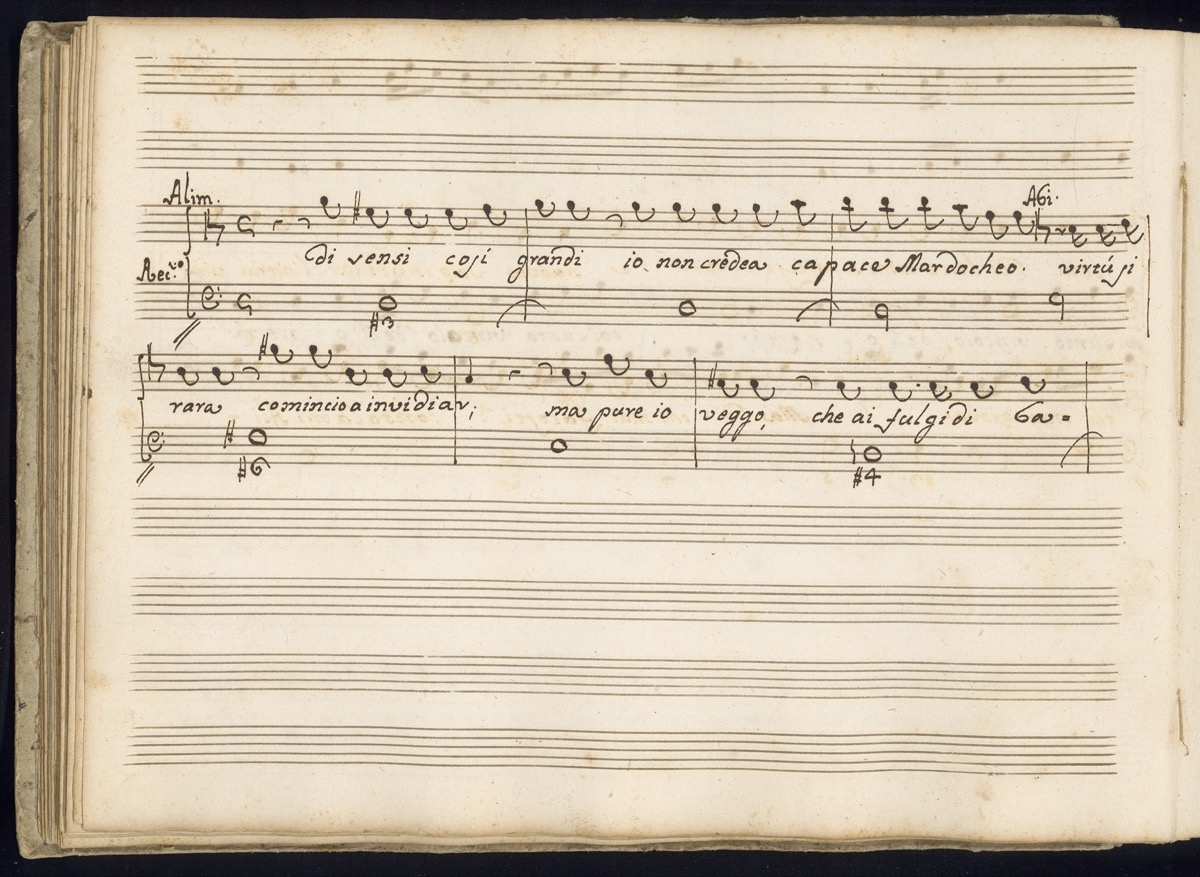 Alim.
Abi.
di sensi così grandi io non credea capace Mardocheo. virtú si
Rec:vo
#3
rara comincio a invidiar; ma pure io veggo, che ai fulgidi ba=
#6 #4